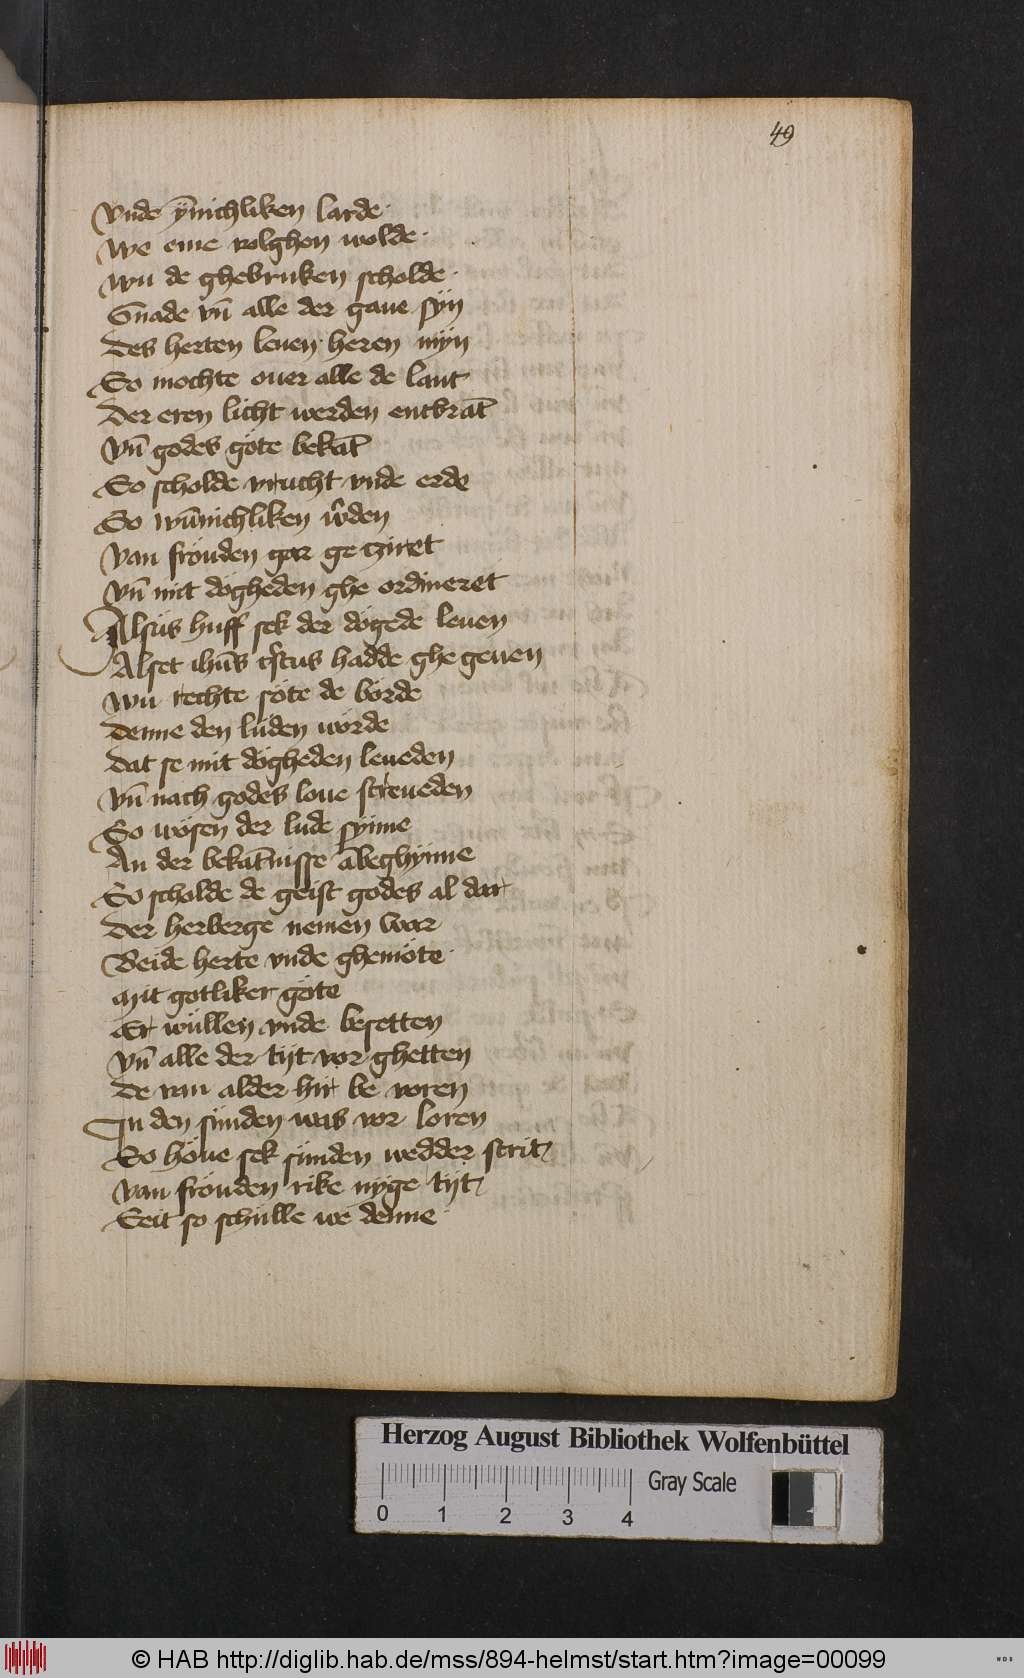 49
vnde ȳnichliken larde
we eme volghen wolde
wu de ghebruken scholde
Gnade vn̄ alle der gaue syn
des herten leuen heren myn
So mochte ouer alle de lant
der eren licht werden entbrāt
vn̄ godes göte bekāt
So scholde vrucht vnde erde
So wūnichliken w̄den
van fröuden gar ge tziret
vn̄ mit dögheden ghe ordineret
Alsüs huff sek der dögede leuen
Alset ihūs cr̄stus hadde ghe geuen
wu rechte söte de börde
denne den lüden wörde
dat se mit dögheden leueden
vn̄ nach godes loue streueden
So wösen der lude synne
An der bekāt̄nisse ābeghynne
So scholde de geist godes al dar
der herberge nemen war
Beide herte vnde ghemöte
mit gotliker göte
Er wüllen vnde besetten
vn̄ alle der tijt vor ghetten
de van alder hir be voren
In den sünden was vor loren
So höue sek sünden wedder strit
van fröuden rike nyge tijt
Seit so schülle we denne
Herzog August Bibliothek Wolfenbüttel
Gray Scale
0 1 2 3 4
© HAB http://diglib.hab.de/mss/894-helmst/start.htm?image=00099